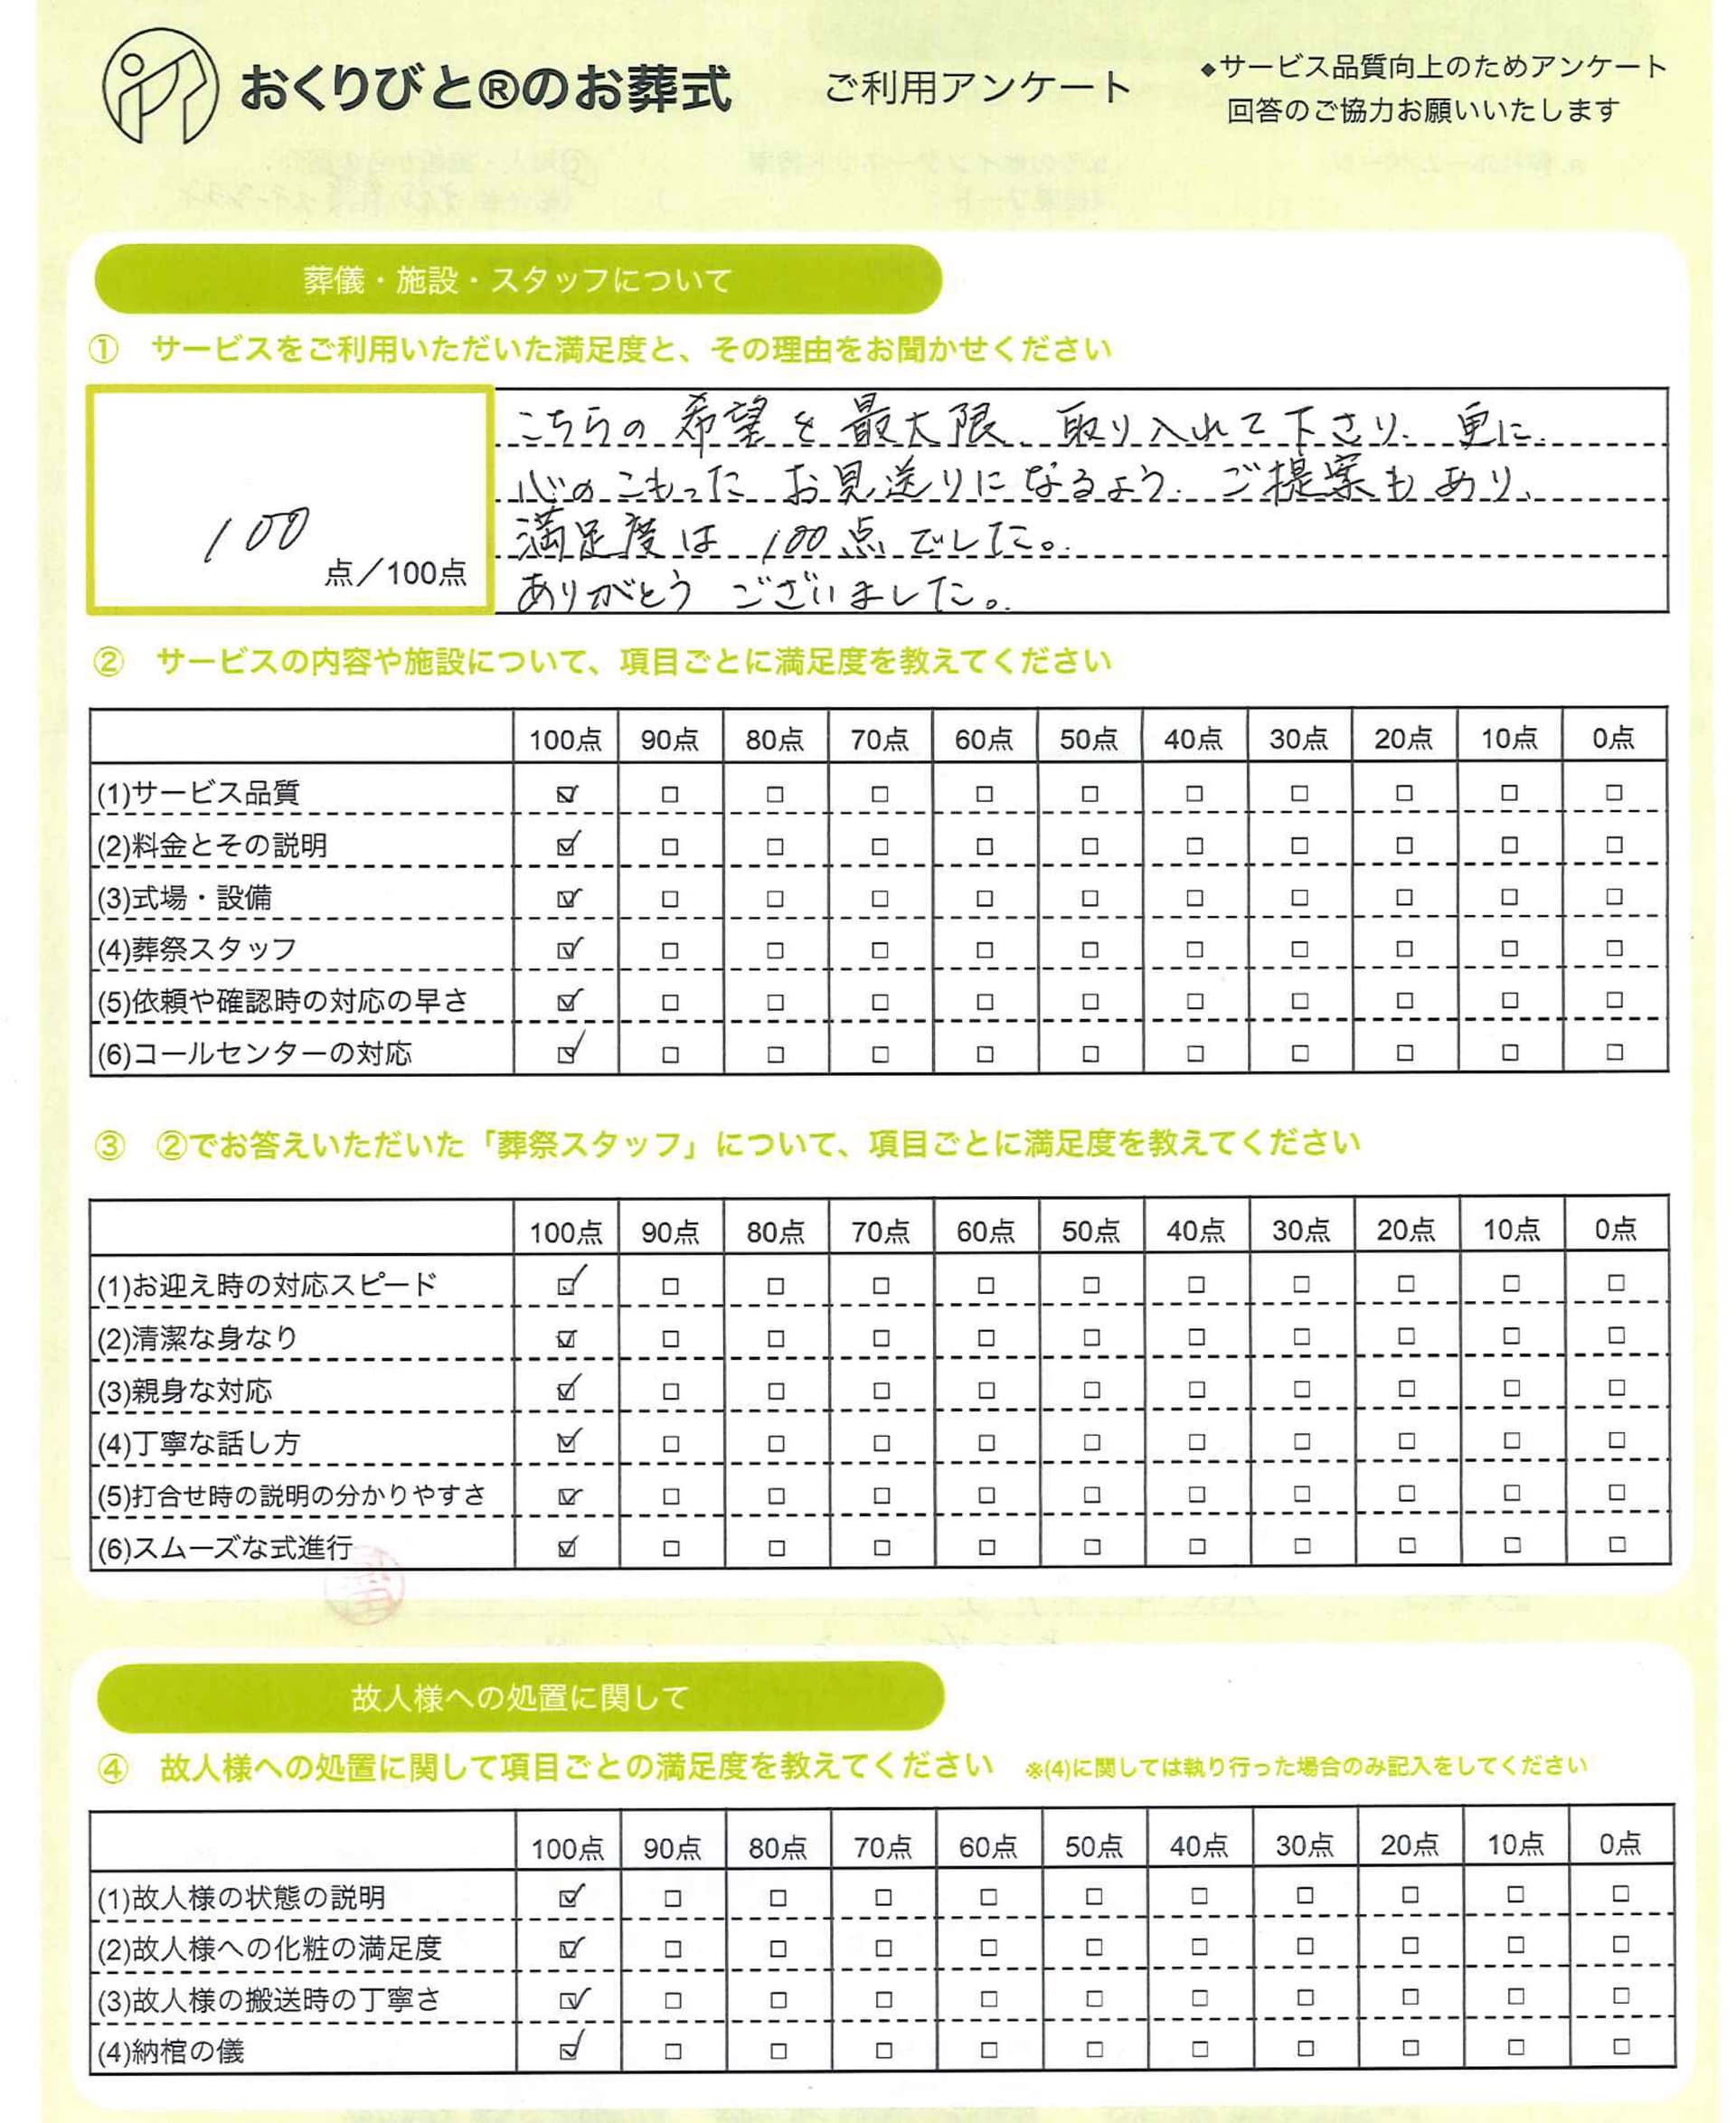 おくりびと®のお葬式 ご利用アンケート
◆サービス品質向上のためアンケート
回答のご協力お願いいたします
葬儀・施設・スタッフについて
① サービスをご利用いただいた満足度と、その理由をお聞かせください
100 点／100点
こちらの希望を最大限、取り入れて下さり、更に
心のこもったお見送りになるよう、ご提案もあり、
満足度は100点でした。
ありがとうございました。
② サービスの内容や施設について、項目ごとに満足度を教えてください
100点 90点 80点 70点 60点 50点 40点 30点 20点 10点 0点
(1)サービス品質 ☑ □ □ □ □ □ □ □ □ □ □
(2)料金とその説明 ☑ □ □ □ □ □ □ □ □ □ □
(3)式場・設備 ☑ □ □ □ □ □ □ □ □ □ □
(4)葬祭スタッフ ☑ □ □ □ □ □ □ □ □ □ □
(5)依頼や確認時の対応の早さ ☑ □ □ □ □ □ □ □ □ □ □
(6)コールセンターの対応 ☑ □ □ □ □ □ □ □ □ □ □
③ ②でお答えいただいた「葬祭スタッフ」について、項目ごとに満足度を教えてください
100点 90点 80点 70点 60点 50点 40点 30点 20点 10点 0点
(1)お迎え時の対応スピード ☑ □ □ □ □ □ □ □ □ □ □
(2)清潔な身なり ☑ □ □ □ □ □ □ □ □ □ □
(3)親身な対応 ☑ □ □ □ □ □ □ □ □ □ □
(4)丁寧な話し方 ☑ □ □ □ □ □ □ □ □ □ □
(5)打合せ時の説明の分かりやすさ ☑ □ □ □ □ □ □ □ □ □ □
(6)スムーズな式進行 ☑ □ □ □ □ □ □ □ □ □ □
故人様への処置に関して
④ 故人様への処置に関して項目ごとの満足度を教えてください ※(4)に関しては執り行った場合のみ記入をしてください
100点 90点 80点 70点 60点 50点 40点 30点 20点 10点 0点
(1)故人様の状態の説明 ☑ □ □ □ □ □ □ □ □ □ □
(2)故人様への化粧の満足度 ☑ □ □ □ □ □ □ □ □ □ □
(3)故人様の搬送時の丁寧さ ☑ □ □ □ □ □ □ □ □ □ □
(4)納棺の儀 ☑ □ □ □ □ □ □ □ □ □ □